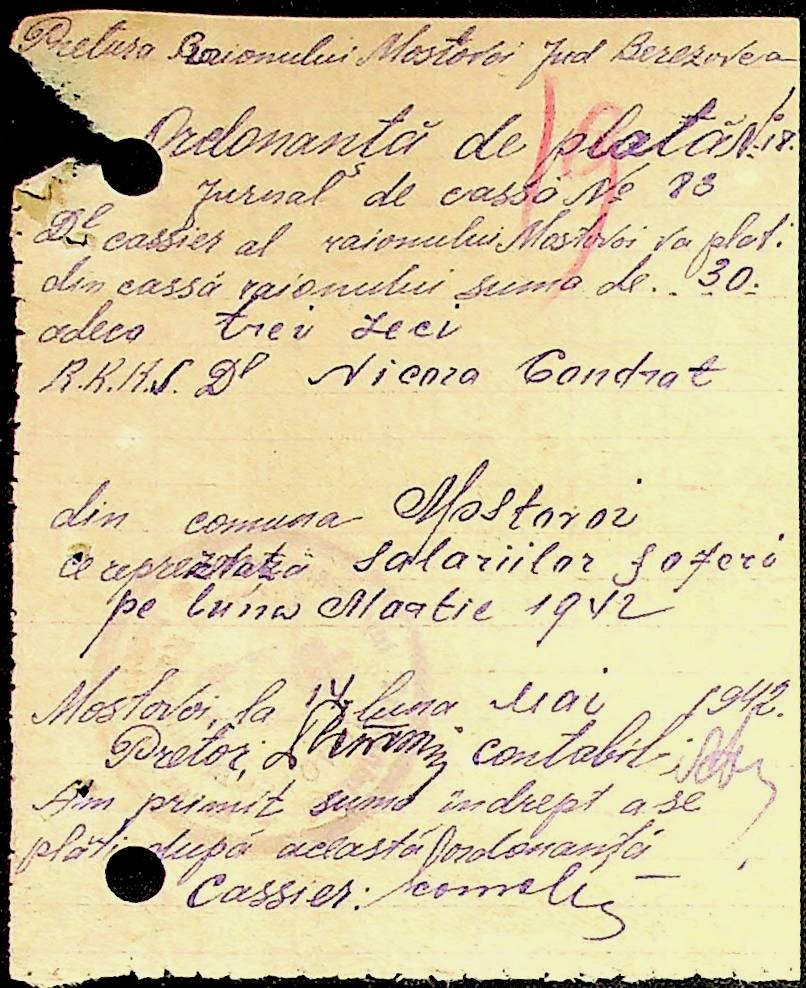 Pretura Raionului Mostovoi Jud Berezovca
Ordonanță de plată No 18.
Jurnal de cassă No 83
Dl cassier al raionului Mostovoi va plati
din cassă raionului suma de.. 30.
adeca trei zeci
R.K.K.S. Dl Nicora Condrat
din comuna Mostovoi
ce reprezintă salariilor șoferi
pe luna Martie 1942
Mostovoi, la 14 luna Mai 1942.
Pretor, contabil
Am primit suma indrept a se
plăti după această ordonanță
Cassier: